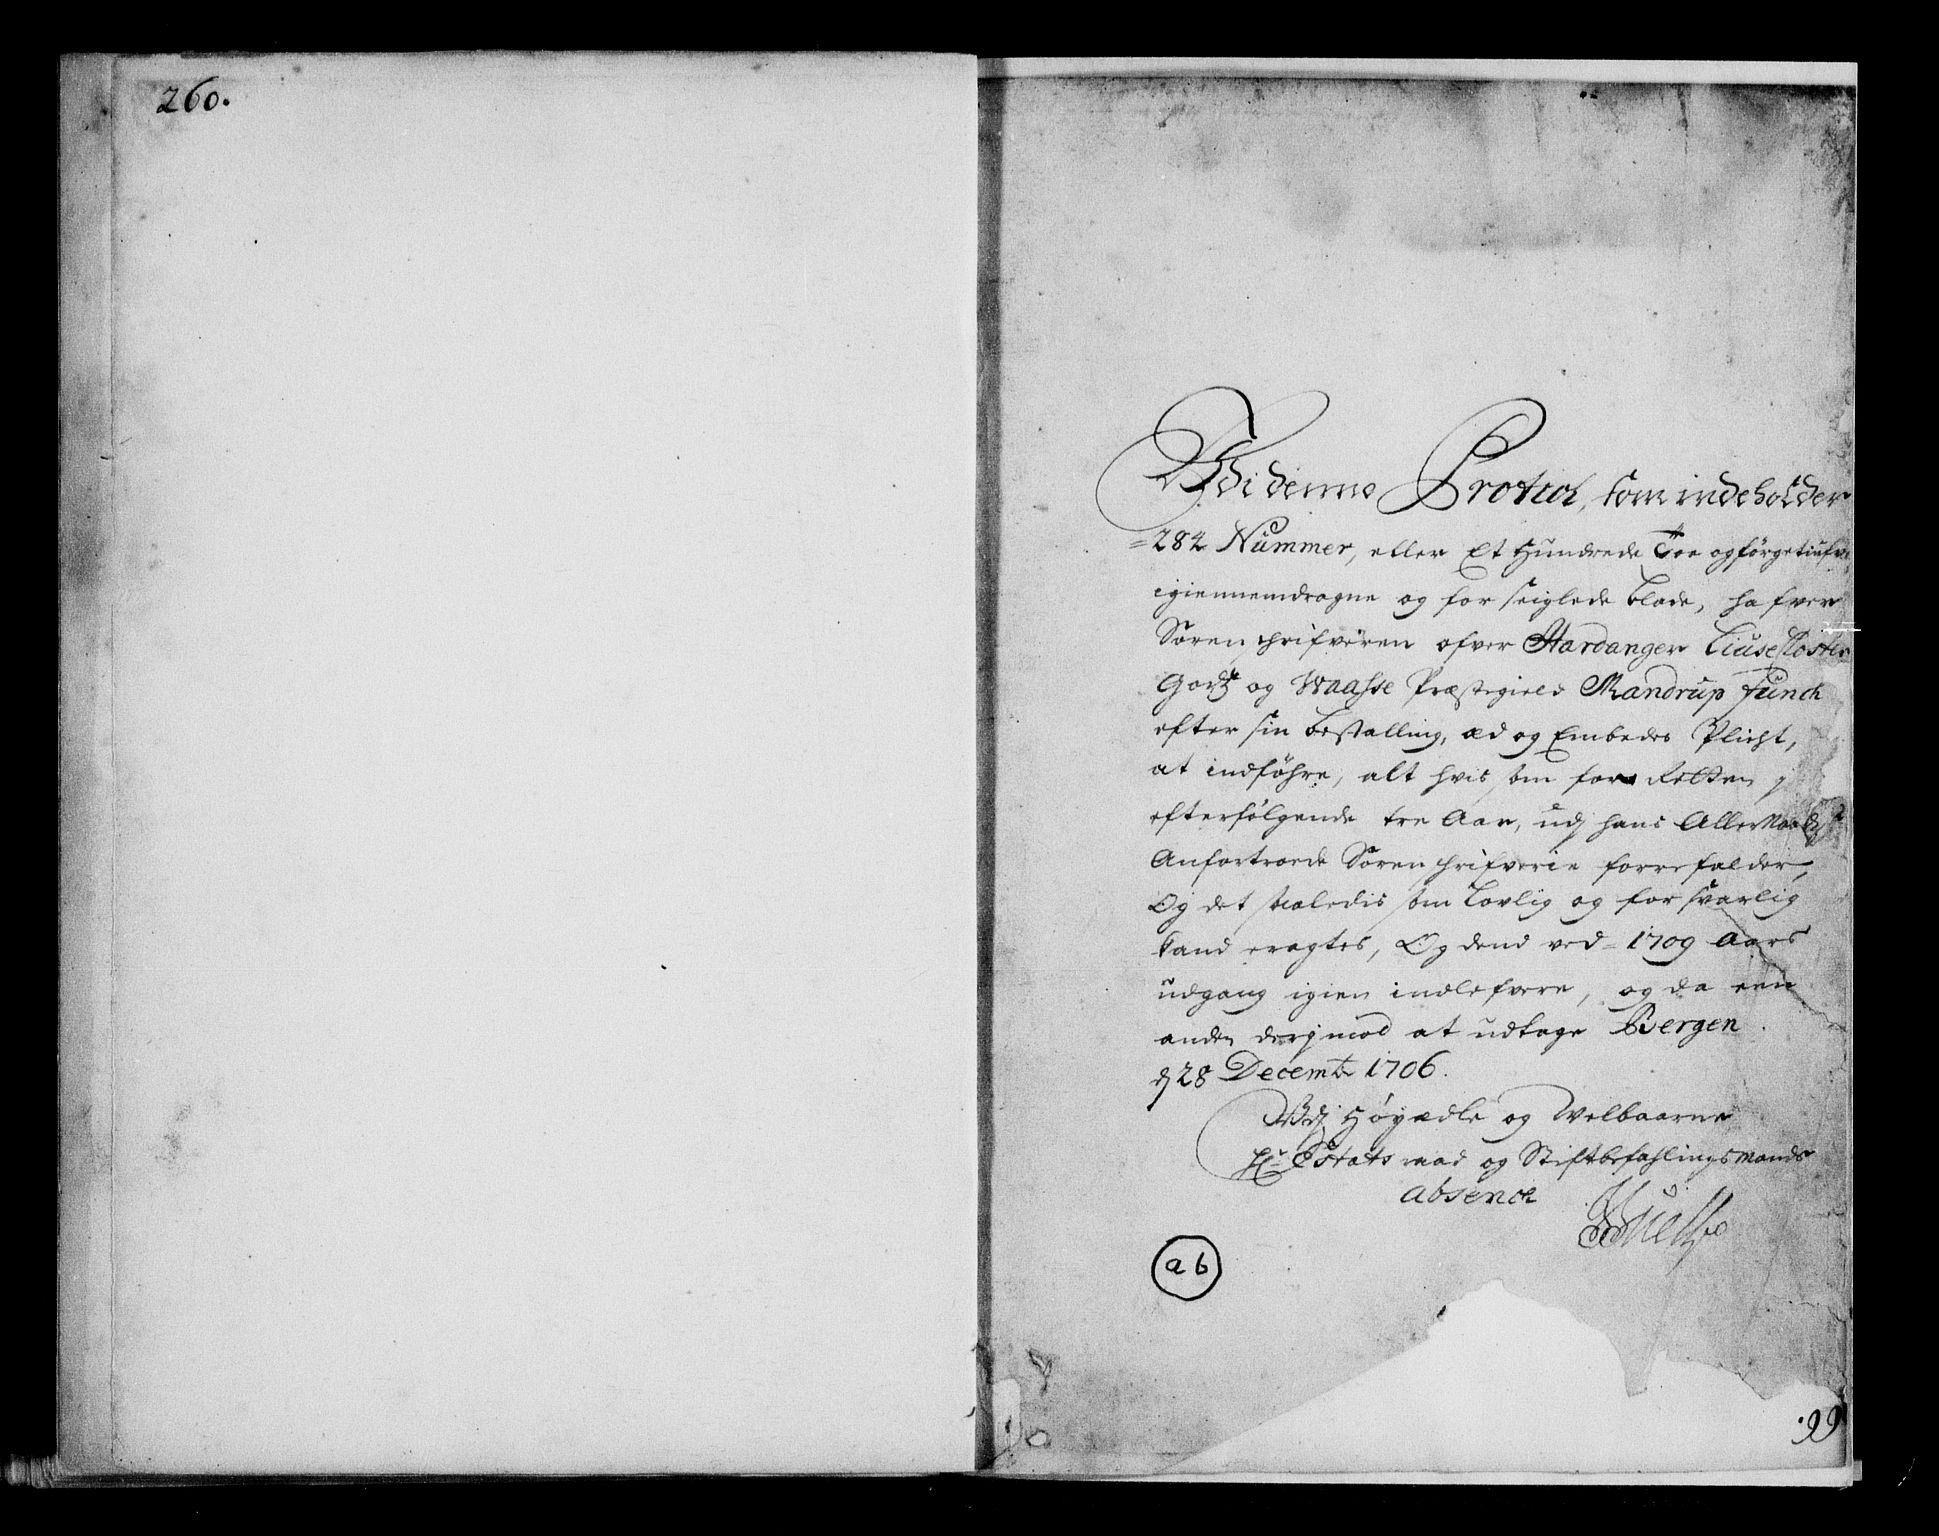 260.
Udi denne Protocol, som indeholder
=282 Nummer, eller Et Hundrede Toe og førgetiufve
igiennemdragne og for seiglede blade, hafver
Sorenschrifveren ofver Hardanger Liuse Closter
Godtz og Waasse Præstegield Mandrup Funch
efter sin bestalling, æd og Embedes Plicht,
at indføhre, alt hvis som for Retten j
efterfølgende tre Aar, udj hans Allernaadst
Anfortroede Sorenschrifverie forrefalder,
Og det saaledis som lovlig og forsvarlig
kand eragtes, Og dend ved 1709 Aars
udgang igien indlefvere, og da een
anden derjmod at udtage Bergen
d 28 Decembr 1706.
Udj Høyædle og Welbaarne
Hr Estats raad og Stiftbefahlingsmands
absence
a 6
99